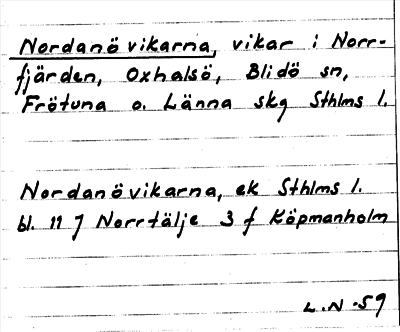 Nordanövikarna, vikar i Norr-
fjärden, Oxhalsö, Blidö sn,
Frötuna o. Länna skg Sthlms l.
Nordanövikarna, ek Sthlms l.
bl. 11 J Norrtälje 3 f Köpmanholm
L.N -59